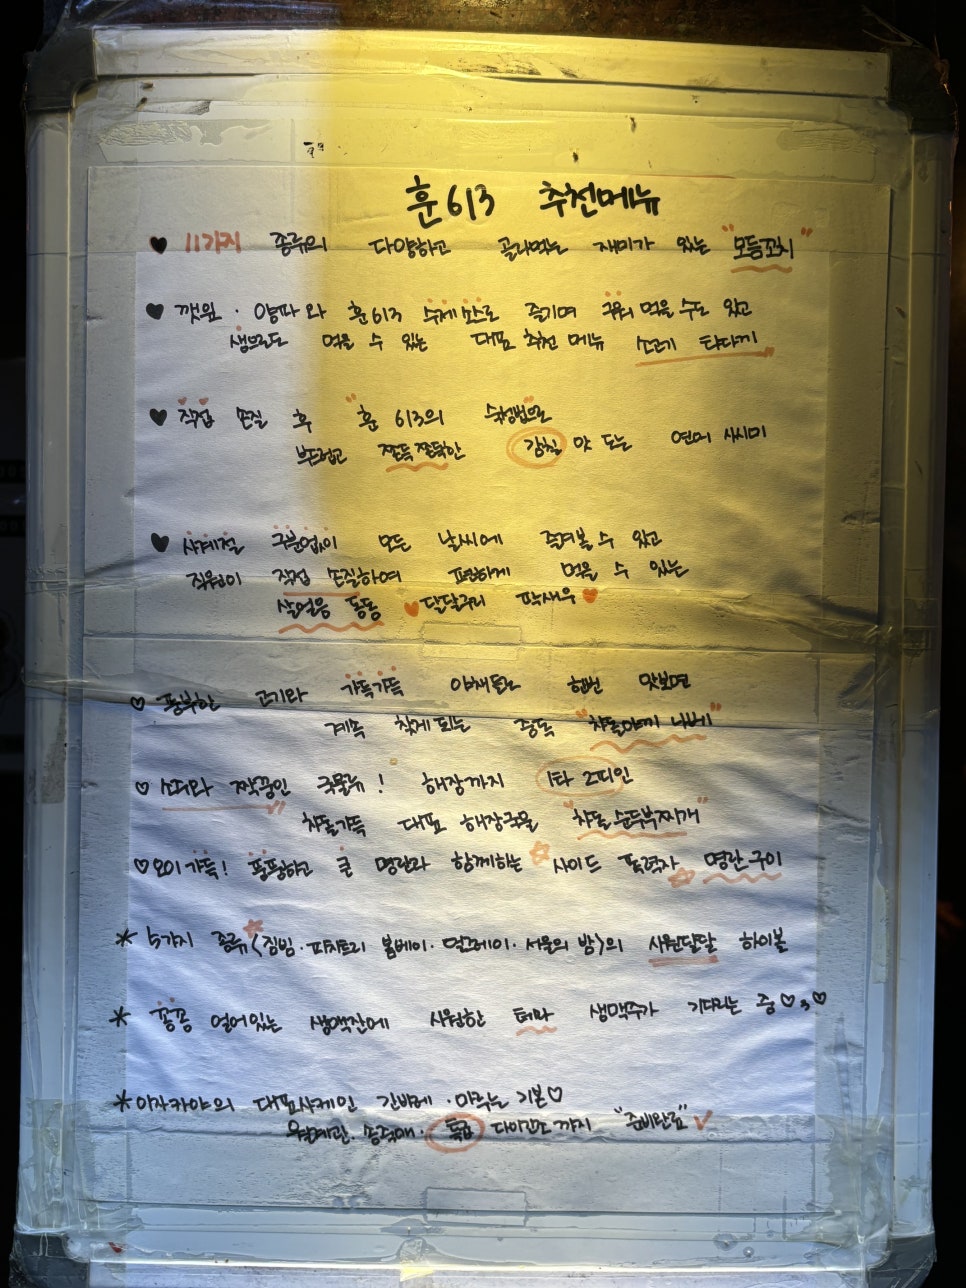 훈613 추천메뉴
♥ 11가지 종류의 다양하고 골라먹는 재미가 있는 "모듬꼬치"
♥ 깻잎 · 양파와 훈613 수제소스로 즐기며 구워 먹을 수도 있고
생으로도 먹을 수 있는 대표 추천 메뉴 소고기 타다끼
♥ 직접 손질 후 "훈 613의 숙성법"으로
부드럽고 쫀득쫀득한 감칠 맛 도는 연어 사시미
♥ 사계절 구분없이 모든 날씨에 즐겨볼 수 있고
직원이 직접 손질하여 편하게 먹을 수 있는
살얼음 동동 ♥달달구리 딱새우♥
♡ 풍부한 고기와 가득가득 야채들은 한번 맛보면
계속 찾게되는 중독 "차돌야끼 나베"
♡ 소떠와 짝꿍인 국물류! 해장까지 1타 2피인
차돌가득 대표 해장국물 "차돌순두부찌개"
♡오이가득! 풍풍하고 큰 명란과 함께하는 ☆사이드 폭력자☆ 명란구이
* 5가지 종류☆<짐빔·피치트리 봄베이·· 서울의 밤>의 시원달달 하이볼
* 꽁꽁 얼어있는 생맥잔에 시원한 테라 생맥주가 기다리는 중♡3♡
*이자카야의 대표사케인 간바레·마루는 기본♡
월계관·송죽매· 특급 다이긴죠 까지 "준비완료"✓